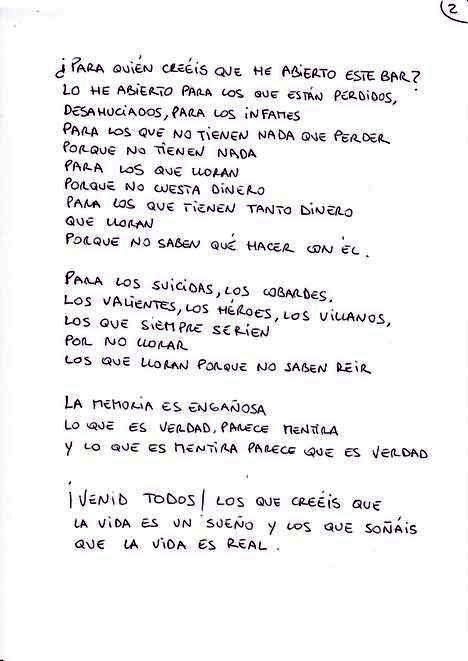 2
¿PARA QUIÉN CREÉIS QUE HE ABIERTO ESTE BAR?
LO HE ABIERTO PARA LOS QUE ESTÁN PERDIDOS,
DESAHUCIADOS, PARA LOS INFAMES
PARA LOS QUE NO TIENEN NADA QUE PERDER
PORQUE NO TIENEN NADA
PARA LOS QUE LLORAN
PORQUE NO CUESTA DINERO
PARA LOS QUE TIENEN TANTO DINERO
QUE LLORAN
PORQUE NO SABEN QUÉ HACER CON ÉL.
PARA LOS SUICIDAS, LOS COBARDES,
LOS VALIENTES, LOS HÉROES, LOS VILLANOS,
LOS QUE SIEMPRE SERIEN
POR NO LLORAR
LOS QUE LLORAN PORQUE NO SABEN REIR
LA MEMORIA ES ENGAÑOSA
LO QUE ES VERDAD, PARECE MENTIRA
Y LO QUE ES MENTIRA PARECE QUE ES VERDAD
¡VENID TODOS! LOS QUE CREÉIS QUE
LA VIDA ES UN SUEÑO Y LOS QUE SOÑÁIS
QUE LA VIDA ES REAL.